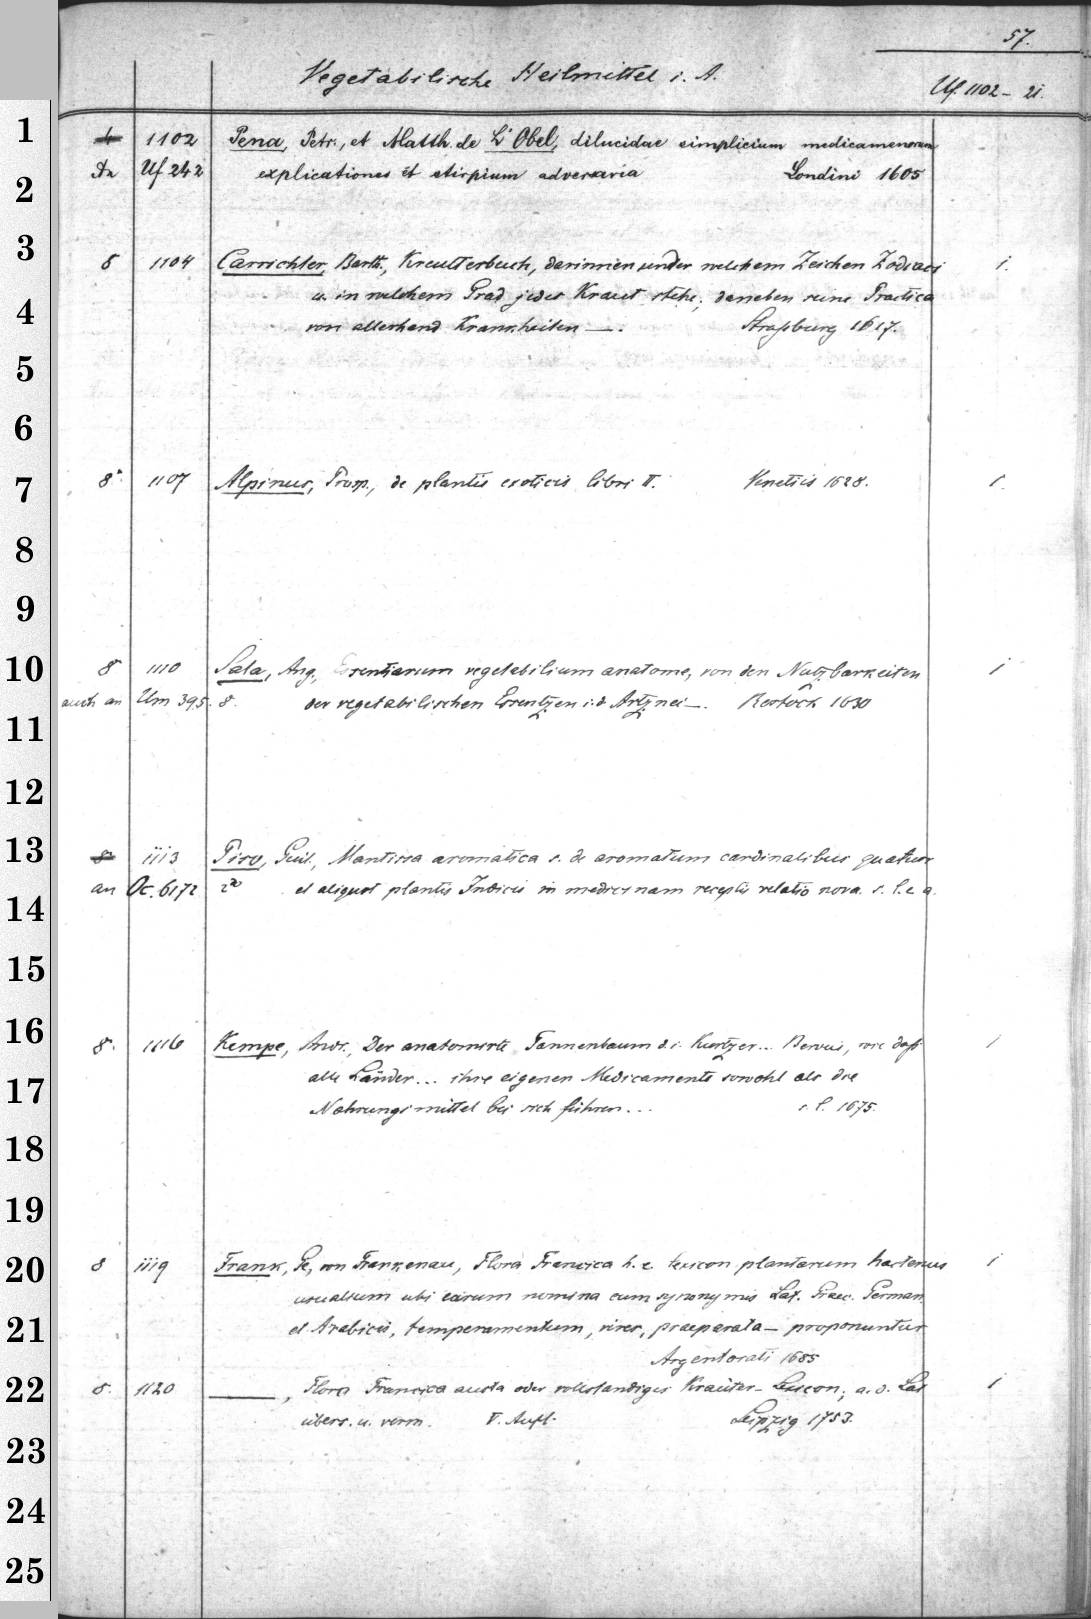 57.
Vegetabilische Heilmittel i. A.
Uf. 1102 - 21.
1
4 1102 Pena, Petr., et Matth. de L'Obel, dilucidae simplicium medicamentorum
2
An Uf 242 explicationes et stirpium adversaria Londini 1605
3
8 1104 Carrichter, Barth., Kreutterbuch, darinnen under welchem Zeichen Zodiaci 1.
4
u. in welchem Grad jedes Kraut stehe; daneben seine Practica
von allerhand Krankheiten —. Straßburg 1617.
5
6
7
8° 1107 Alpinus, Prosp., de plantis exoticis libri II. Venetiis 1628. 1.
8
9
10
8 1110 Sala, Ang., Essentiarum vegetabilium anatome, von den Nutzbarkeiten 1
auch an Um 395. 8. der vegetabilischen Essentzen i. d. Artznei —. Rostock 1630
11
12
13
8 1113 Piso, Guil., Mantissa aromatica s. de aromatum cardinalibus quatuor
an Oc. 6172 2° et aliquot plantis Indicis in medicinam receptis relatio nova. s. l. e. a.
14
15
16
8. 1116 Kempe, Andr., Der anatomirte Tannenbaum d. i. Kurtzer... Beweis, wie daß 1
17
alle Länder... ihre eigenen Medicamente sowohl als die
Nahrungsmittel bei sich führen... s. l. 1675.
18
19
20
8 1119 Frank, Ge., von Frankenau, Flora Francica h. e. lexicon plantarum hactenus 1
usualium ubi earum nomina cum synonymis Lat. Graec. German.
21
et Arabicis, temperamentum, vires, praeparata — proponuntur
Argentorati 1685
22
8. 1120 ———, Flora Francica aucta oder vollständiges Kräuter-Lexicon; a. d. Lat. 1
übers. u. verm. V. Aufl. Leipzig 1753.
23
24
25